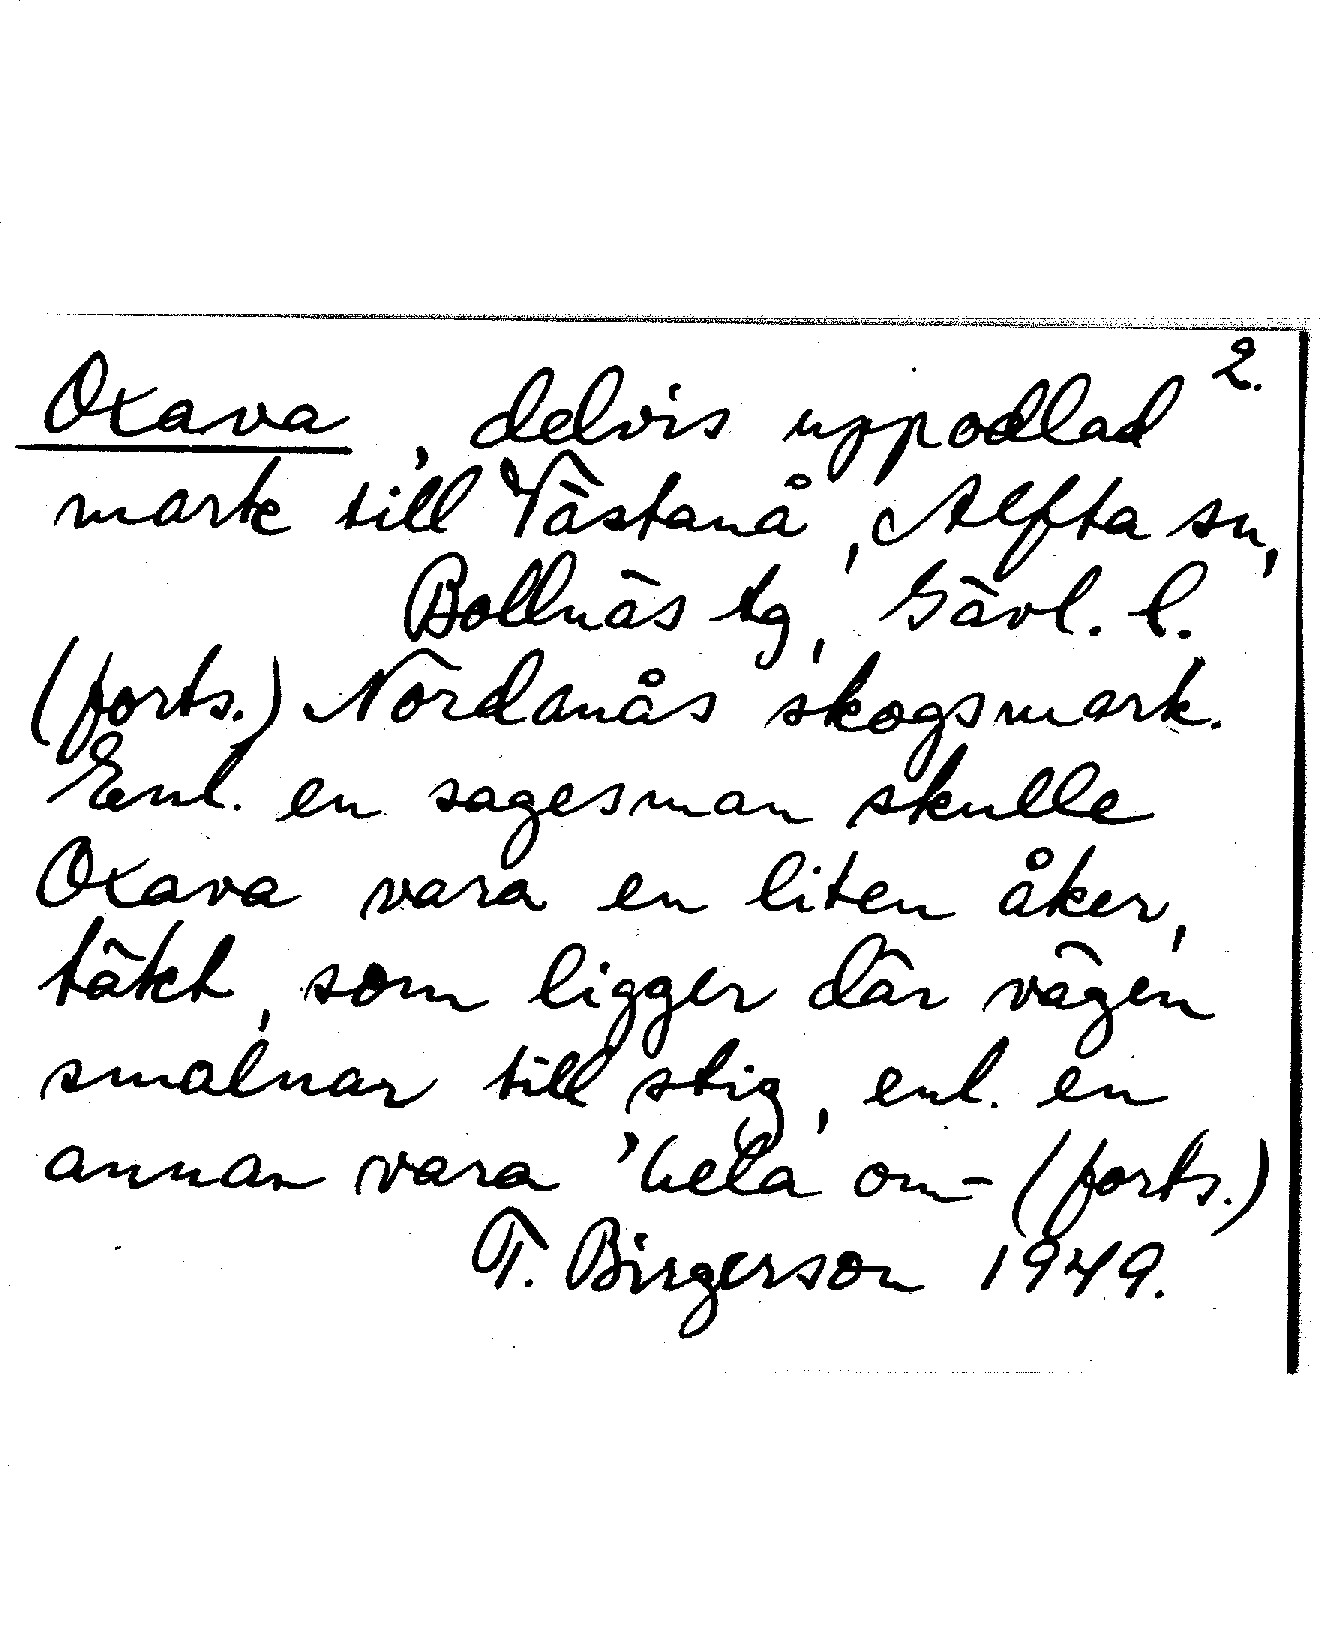 2.
Oxava, delvis uppodlad
mark till Västanå, Alfta sn,
Bollnäs tg, Gävl. l.
(forts.) Nordanås skogsmark.
Enl. en sagesman skulle
Oxava vara en liten åker,
täkt, som ligger där vägen
smalnar till stig, enl. en
annan vara 'hela om- (forts.)
T. Birgerson 1949.